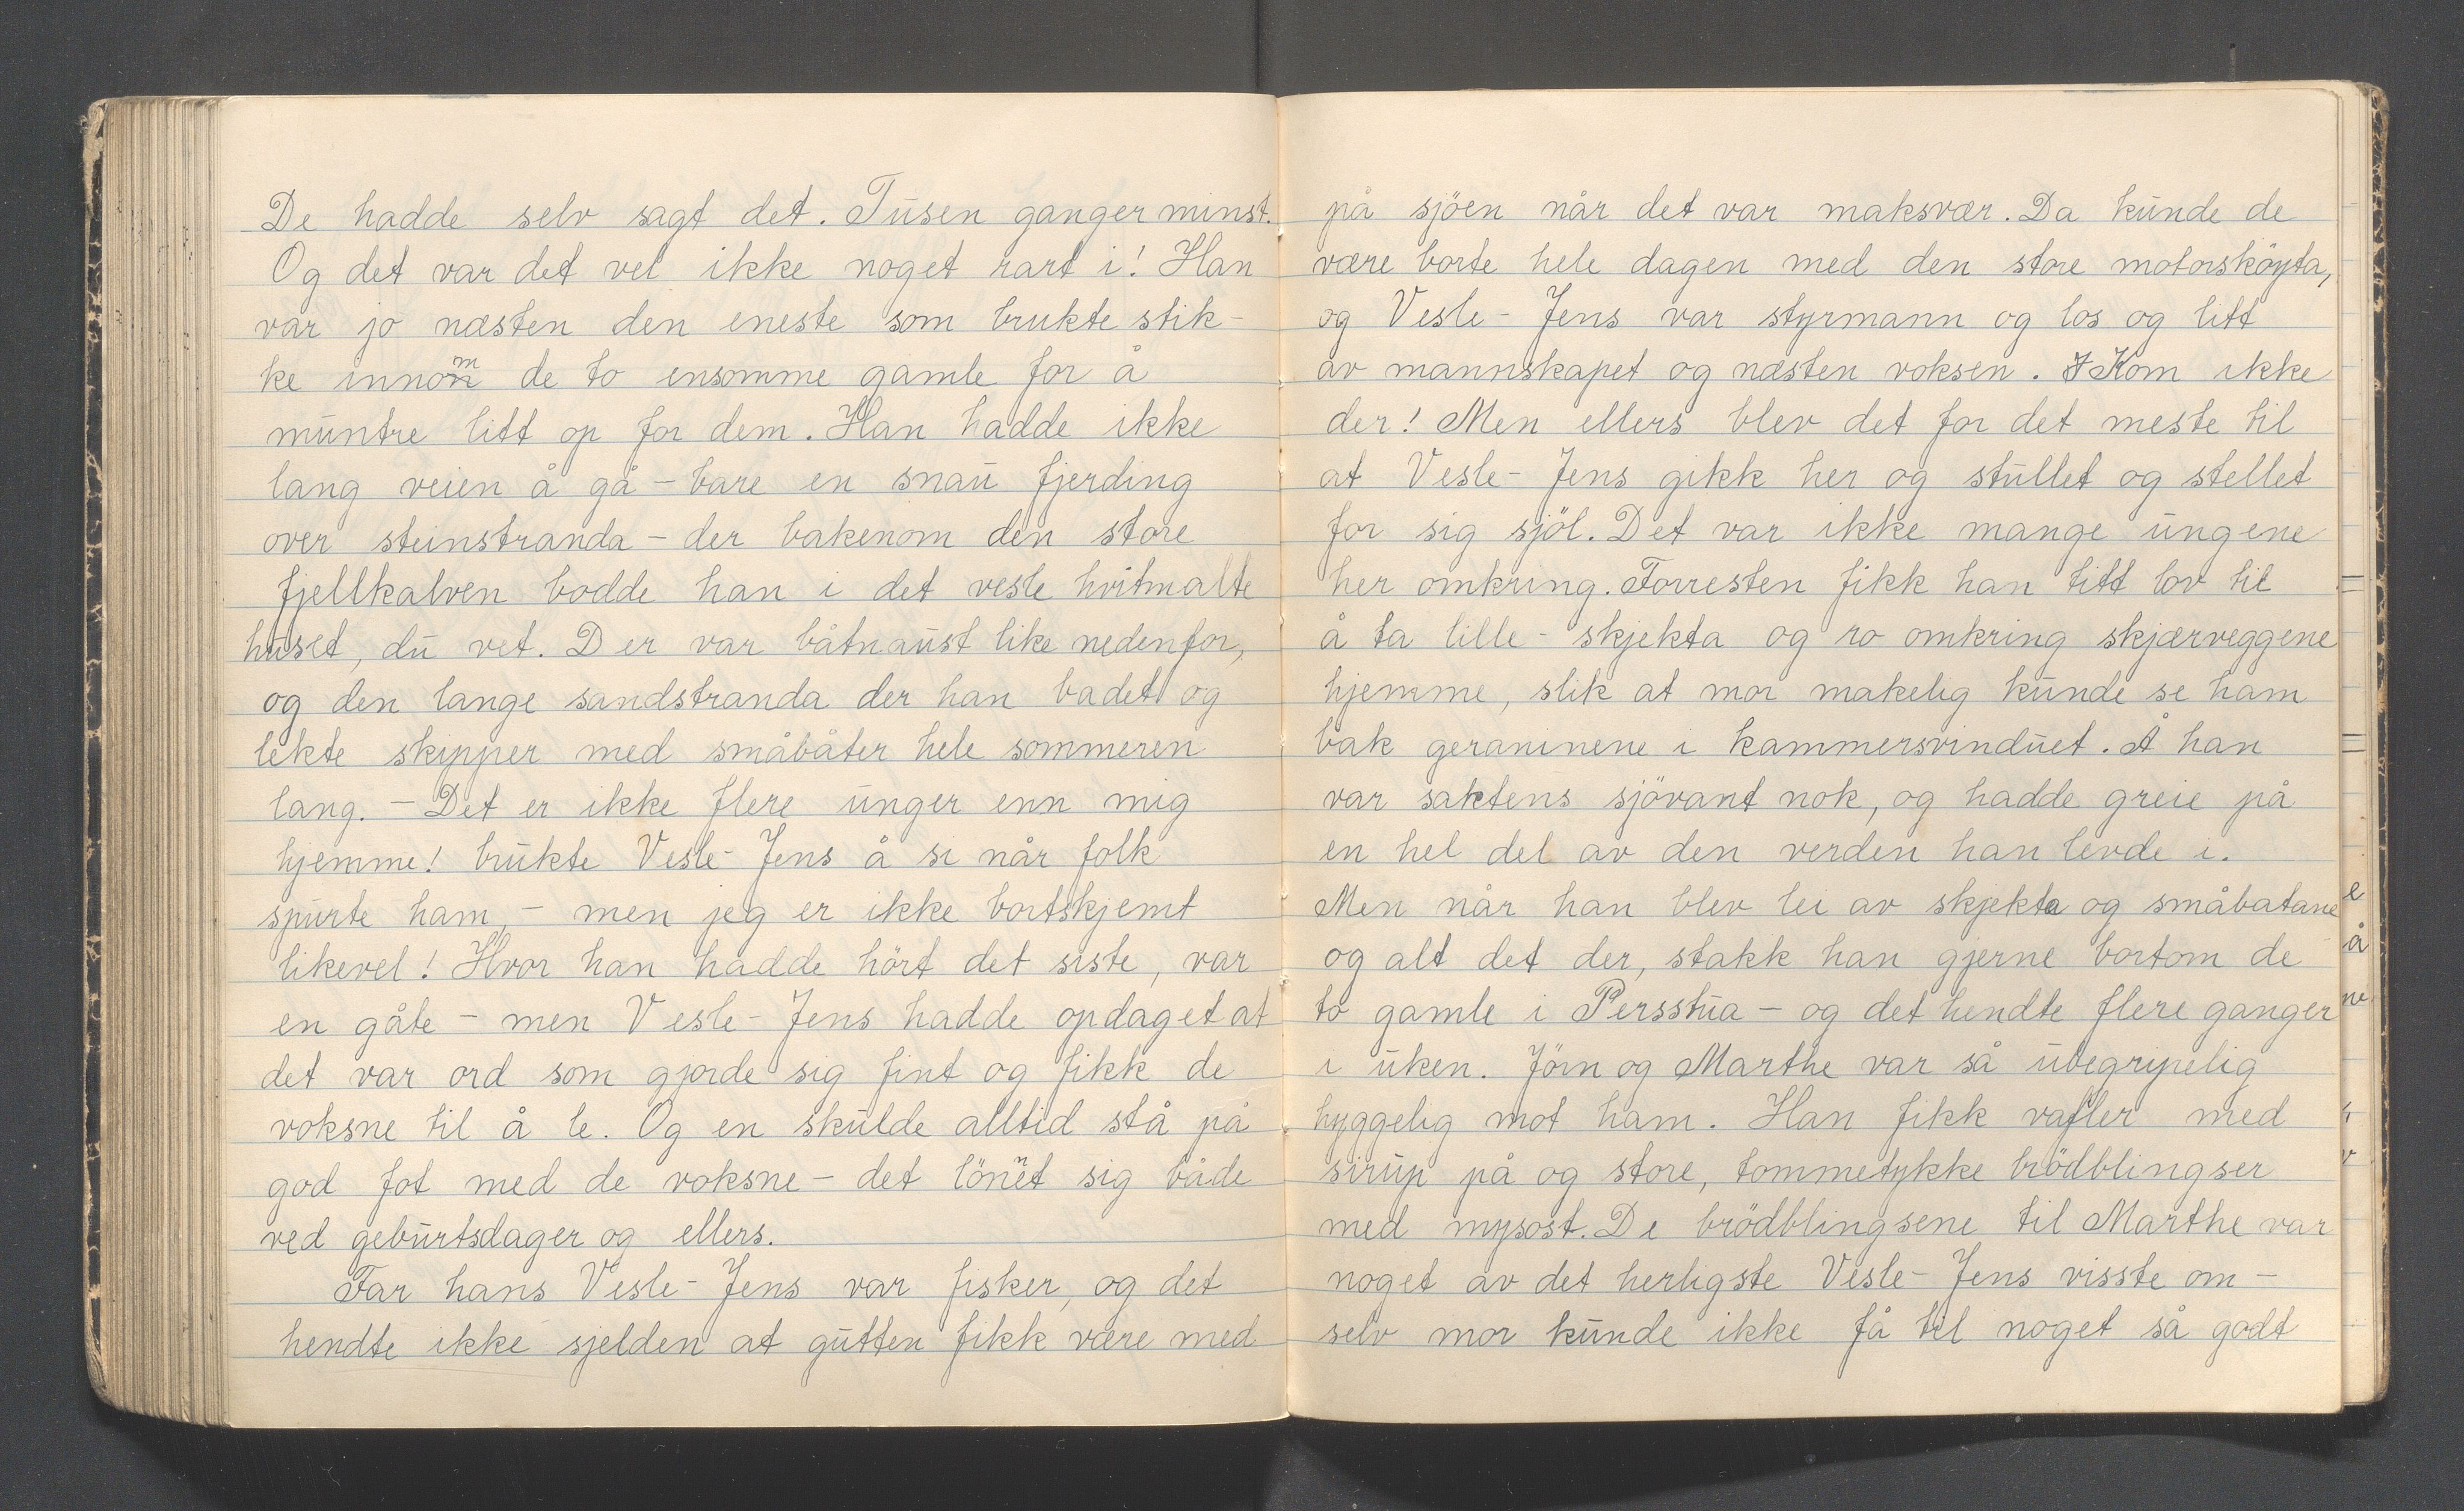 De hadde selv sagt det. Tusen ganger minst.
Og det var det vel ikke noget rart i! Han
var jo næsten den eneste som brukte stik-
ke innom de to ensomme gamle for å
muntre litt op for dem. Han hadde ikke
lang veien å gå – bare en snau fjerding
over steinstranda – der bakenom den store
fjellkalven bodde han i det vesle hvitmalte
huset, du vet. Der var båtnaust like nedenfor,
og den lange sandstranda der han badet og
lekte skipper med småbåter hele sommeren
lang. – Det er ikke flere unger enn mig
hjemme! brukte Vesle-Jens å si når folk
spurte ham, – men jeg er ikke bortskjemt
likevel! Hvor han hadde hört det siste, var
en gåte – men Vesle-Jens hadde opdaget at
det var ord som gjorde sig fint og fikk de
voksne til å le. Og en skulde alltid stå på
god fot med de voksne – det lönnet sig både
ved geburtsdager og ellers.
Far hans Vesle-Jens var fisker, og det
hendte ikke sjelden at gutten fikk være med
på sjöen når det var maksvær. Da kunde de
være borte hele dagen med den store motorsköyta,
og Vesle-Jens var styrmann og los og litt
av mannskapet og næsten voksen. Kom ikke
der! Men ellers blev det for det meste til
at Vesle-Jens gikk her og stullet og stellet
for sig sjöl. Det var ikke mange ungene
her omkring. Forresten fikk han titt lov til
å ta lille-skjekta og ro omkring skjærveggene
hjemme, slik at mor makelig kunde se ham
bak geraninene i kammersvinduet. Å han
var saktens sjövant nok, og hadde greie på
en hel del av den verden han levde i.
Men når han blev lei av skjekta og småbatane
og alt det der, stakk han gjerne bortom de
to gamle i Persstua – og det hendte flere ganger
i uken. Jörn og Marthe var så ubegripelig
hyggelig mot ham. Han fikk vafler med
sirup på og store, tommetykke brödblingser
med mysost. De brödblingsene til Marthe var
noget av det herligste Vesle-Jens visste om –
selv mor kunde ikke få til noget så godt